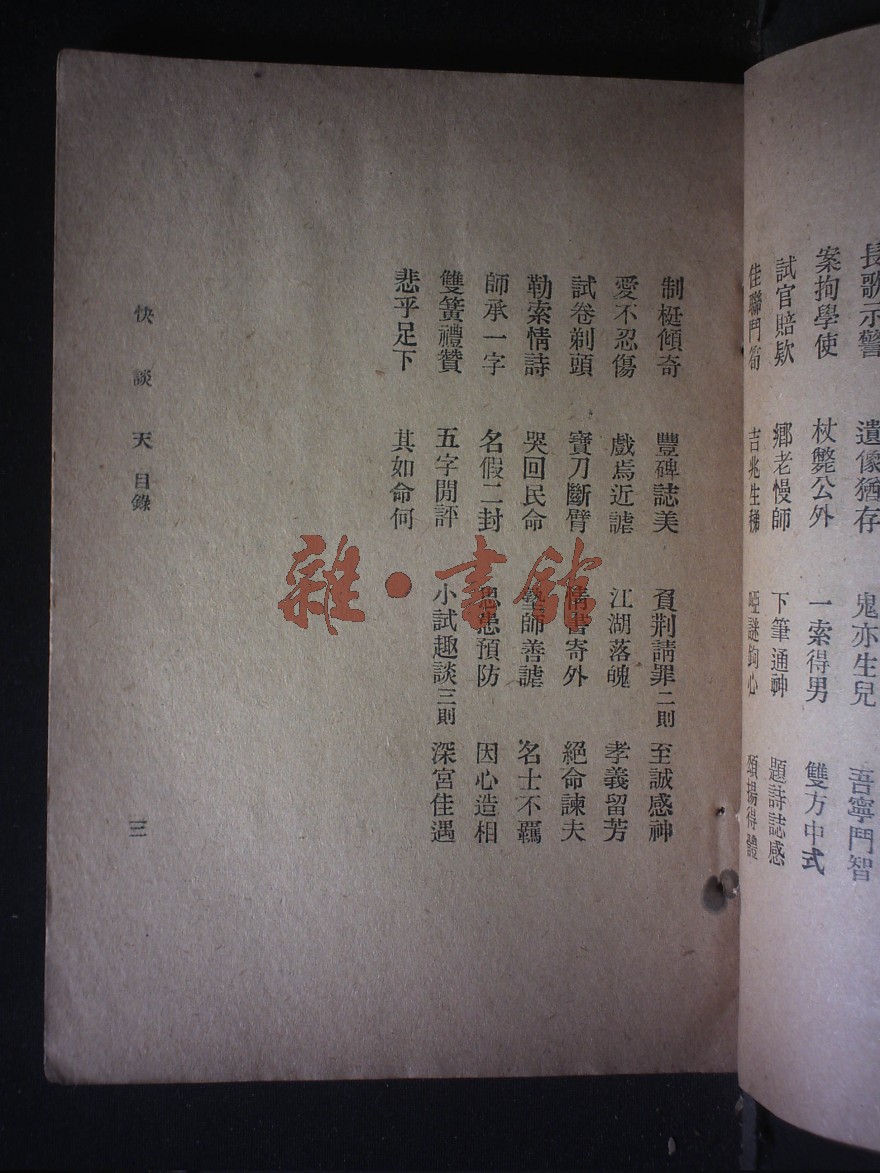 長歌示警　遺像猶存　鬼亦生兒　吾寧鬥智
案拘學使　杖斃公外　一索得男　雙方中式
試官賠欵　鄉老慢師　下筆通神　題詩誌感
佳聯鬥筍　吉兆生稊　啞謎鉤心　頌揚得體
制梃傾奇　豐碑誌美　負荆請罪二則　至誠感神
愛不忍傷　戲焉近謔　江湖落魄　孝義留芳
試卷剃頭　寶刀斷臂　情書寄外　絕命諫夫
勒索情詩　哭回民命　塾師善謔　名士不羈
師承一字　名假二封　思患預防　因心造相
雙簧禮贊　五字閒評　小試趣談三則　深宮佳遇
悲乎足下　其如命何
快談天　目錄
三
雜·書館